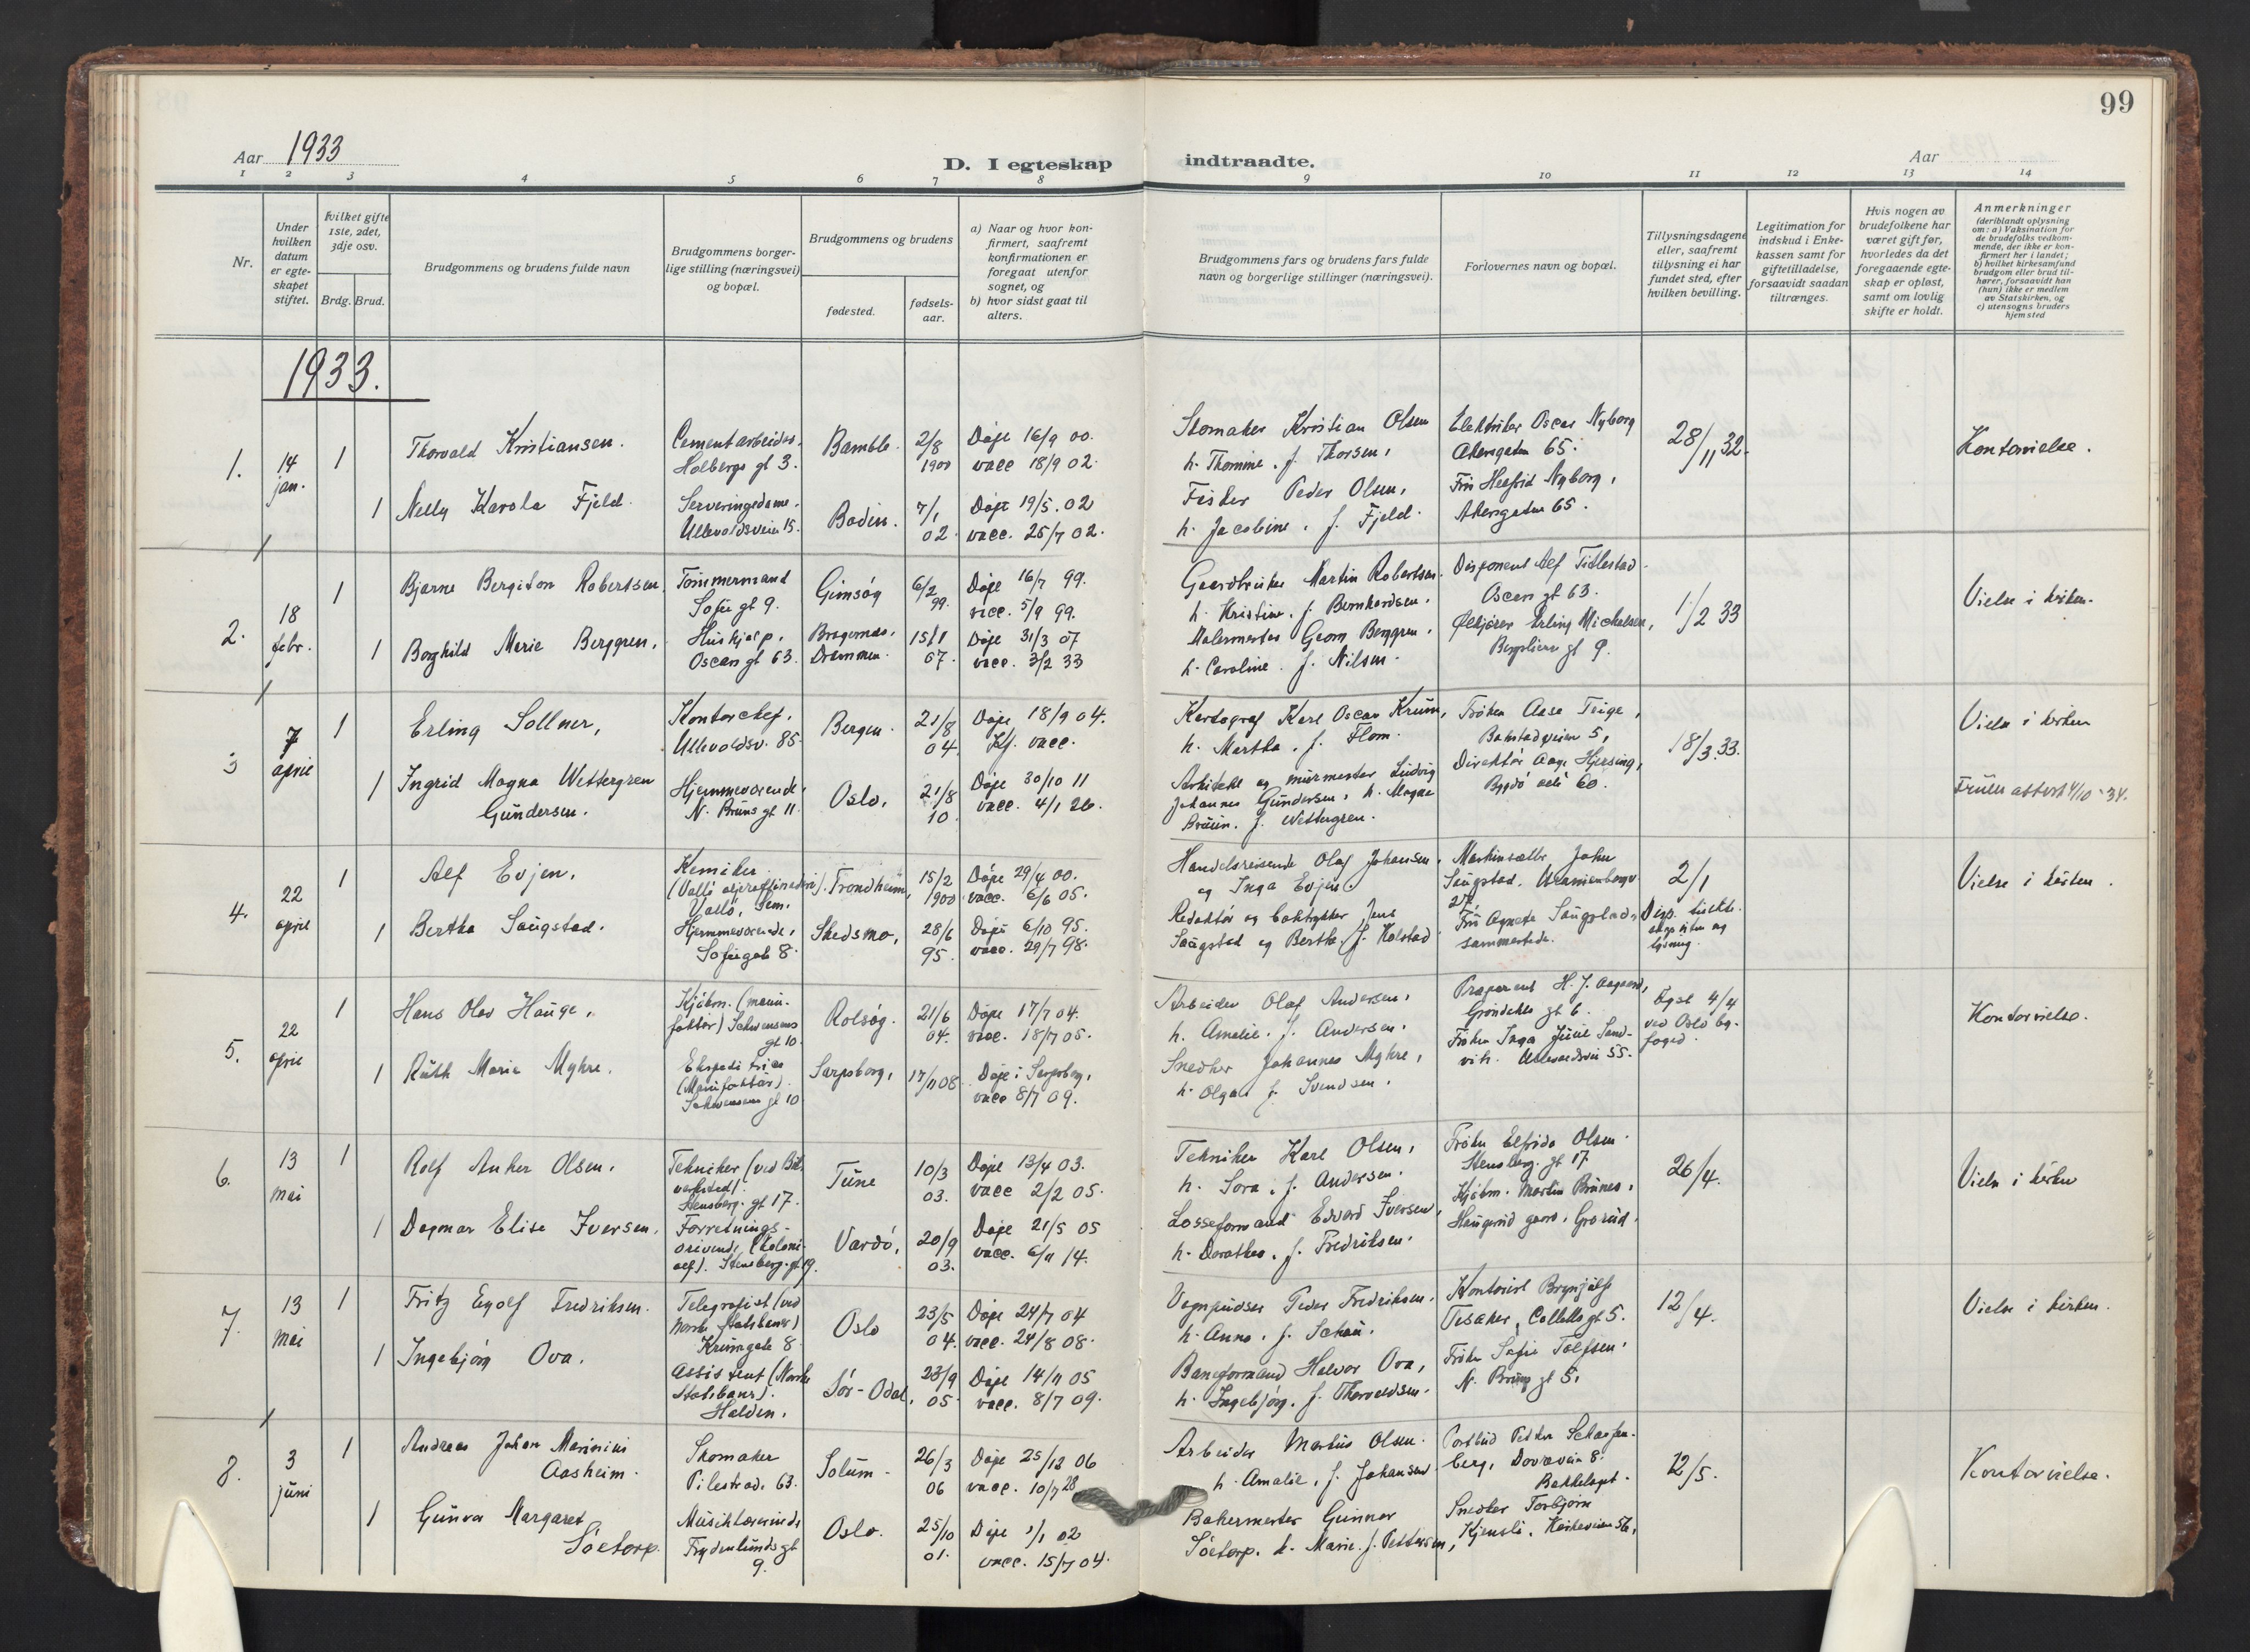 99
Aar 1933
D. I egteskap indtraadte.
Aar
1 2 3 4 5 6 7 8 9 10 11 12 13 14
Nr.
Under hvilken datum er egteskapet stiftet.
Hvilket gifte 1ste, 2det, 3dje osv.
Brdg. Brud.
Brudgommens og brudens fulde navn
Brudgommens borgerlige stilling (næringsvei) og bopæl.
Brudgommens og brudens
fødested.
fødselsaar.
a) Naar og hvor konfirmert, saafremt konfirmationen er foregaat utenfor sognet, og
b) hvor sidst gaat til alters.
Brudgommens fars og brudens fars fulde navn og borgerlige stillinger (næringsvei).
Forlovernes navn og bopæl.
Tillysningsdagene eller, saafremt tillysning ei har fundet sted, efter hvilken bevilling.
Legitimation for indskud i Enkekassen samt for giftetilladelse, forsaavidt saadan tiltrænges.
Hvis nogen av brudefolkene har været gift før, hvorledes da det foregaaende egteskap er opløst, samt om lovlig skifte er holdt.
Anmerkninger
(deriblandt oplysning om: a) Vaksination for de brudefolks vedkommende, der ikke er konfirmert her i landet; b) hvilket kirkesamfund brudgom eller brud tilhører, forsaavidt han (hun) ikke er medlem av Statskirken, og c) utensogns bruders hjemsted
1933.
1.
14 jan.
1
Thorvald Kristiansen.
Cementarbeider.
Holbergs gt 3.
Bamble.
2/8 1900
Døpt 16/9 00.
vacc 18/9 02.
Skomaker Kristian Olsen
h. Thomine. f. Thorsen,
Elektriker Oscar Nyborg
Akersgaten 65.
28/11 32.
Kontorvielse.
1
Nelly Karola Fjeld.
Serveringsdame.
Ullevoldsveien 15.
Bodin.
7/1 02.
Døpt 19/5. 02
vacc. 25/7 02.
Fisker Peder Olsen,
h. Jacobine. f. Fjeld.
Fru Nyborg,
Akersgaten 65.
2.
18 febr.
1
Bjarne Bergiton Robertsen.
Tømmermand
Sofie gt 9.
Gimsøy
6/2 99.
Døpt 16/7 99.
vacc. 5/9 99.
Gaardbruker Martin Robertsen.
h. Kristine. f. Bernhardsen.
Disponent Alf Tidlestad.
Oscars gt 63.
1/2 33
Vielse i kirken.
1
Borghild Marie Berggren.
Hushjelp.
Oscars gt 63.
Bragernes,
Drammen.
15/1 07.
Døpt 31/3 07
vacc. 3/2 33
Malermester Georg Berggren.
h. Caroline. f. Nilsen.
Erling Michelsen,
Bergsliens gt 9.
3
7 april
1
Erling Sollner,
Kontorchef.
Ullevoldsv. 85.
Bergen.
21/8 04.
Døpt 18/9 04.
vacc.
Kartograf Karl Oscar Krum,
h. Martha. f. Flom.
Frøken Aase Teige,
Bakstadveien 5,
18/3. 33.
Vielse i kirken
1
Ingrid Magna Wettergren
Gundersen.
Hjemmeværende.
N. Bruns gt 11.
Oslo.
21/8 10.
Døpt 30/10 11
vacc. 4/1 26.
Arkitekt og murmester Ludvig
Johannes Gundersen. h. Magna
Bruun. f. Wettergren.
Direktør Aage Hjersing,
Bygdø allé 60.
attest 4/10-34.
4.
22 april
1
Alf Evjen.
Kemiker
(Vallø oljeraffineri).
Vallø, Sem.
Trondheim,
15/2 1900
Døpt 29/4 00.
vacc. 6/6 05.
Handelsreisende Olaf Johansen.
og Inga Evjen.
John
Saugstad. Uranienborgv.
27.
2/1
Vielse i kirken.
1
Bertha Saugstad.
Hjemmeværende,
Sofiegate 8.
Skedsmo,
28/6 95.
Døpt 6/10 95.
vacc. 29/7 98.
Redaktør og boktrykker Jens
Saugstad og Bertha f. Holstad
Fru Agnete Saugstad,
sammesteds.
Disp.
5.
22 april
1
Hans Olav Hauge.
Kjøbm. (manufaktur) Schwensens
gt 10.
Rolsøy.
21/6 04.
Døpt 17/7 04.
vacc. 18/7 05.
Arbeider Olaf Andersen.
h. Amalie. f. Andersen.
H. J. Aagaard,
gt 6.
Lyst 4/4
ved Oslo byfoged.
Kontorvielse.
1
Ruth Marie Myhre.
Ekspeditrise
(Manufaktur).
Schwensens gt 10
Sarpsborg,
17/11 08.
Døpt i Sarpsborg,
vacc 8/7 09.
Snedker Johannes Myhre,
h. Olga f. Svendsen.
Frøken Inga Julie Sandvik. Ullevoldsvei 55.
6.
13 mai
1
Rolf Anker Olsen.
Tekniker (ved Bilverksted).
Stensberg. gt 17.
Tune
10/3 03.
Døpt 13/4 03.
vacc 2/2 05.
Tekniker Karl Olsen,
h. Sora. f. Andersen.
Frøken Elfrida Olsen.
Stensberg. gt 17.
26/4.
Vielse i kirken
1
Dagmar Elise Iversen.
Forretningsdrivende (kolonial). Stensberg. gt 19.
Vardø,
20/9 03.
Døpt 21/5 05
vacc. 6/11 14.
Losseformand Edvard Iversen,
h. Dorothea. f. Fredriksen.
Kjøbm. Martin Brunes,
Haugerud gaard, Grorud.
7.
13 mai
1
Fritz Eyolf Fredriksen.
Telegrafist (ved
Norske Statsbaner)
Krumgate 8.
Oslo
23/5 04.
Døpt 24/7 04
vacc. 24/8 08.
Vognpudser Peder Fredriksen.
h. Anna. f. Schau.
Kontorist Brynjulf
Tesaker, Colletts gt 5.
12/4.
Vielse i kirken.
1
Ingebjørg Ova.
Assistent (Norske
Statsbaner).
Halden.
Sør-Odal.
23/9 05.
Døpt 14/11 05
vacc. 8/7 09.
Baneformand Halvor Ova,
h. Ingebjørg. f. Thorvaldsen.
Frøken Sofie Tolfsen.
N. Bruns gt 5.
8.
3 juni
1
Andreas Johan Marinius
Aasheim.
Skomaker
Pilestræd. 63.
Solum.
26/3 06
Døpt 25/12 06
vacc. 10/7 28
Arbeider Martius Olsen.
h. Amalie. f. Johansen.
Postbud Petter Scharfenberg, Dovreveien 8.
Bekkelaget.
12/5.
Kontorvielse.
1
Gunvor Margaret
Søetorp.
Musiklærerinde
Frydenlunds gt
9.
Oslo.
25/10 01.
Døpt 1/1 02
vacc. 15/7 04.
Bakermester Gunnar
Søetorp. h. Marie. f. Pettersen,
Snedker Torbjørn
Kjensli. Kirkeveien 56.